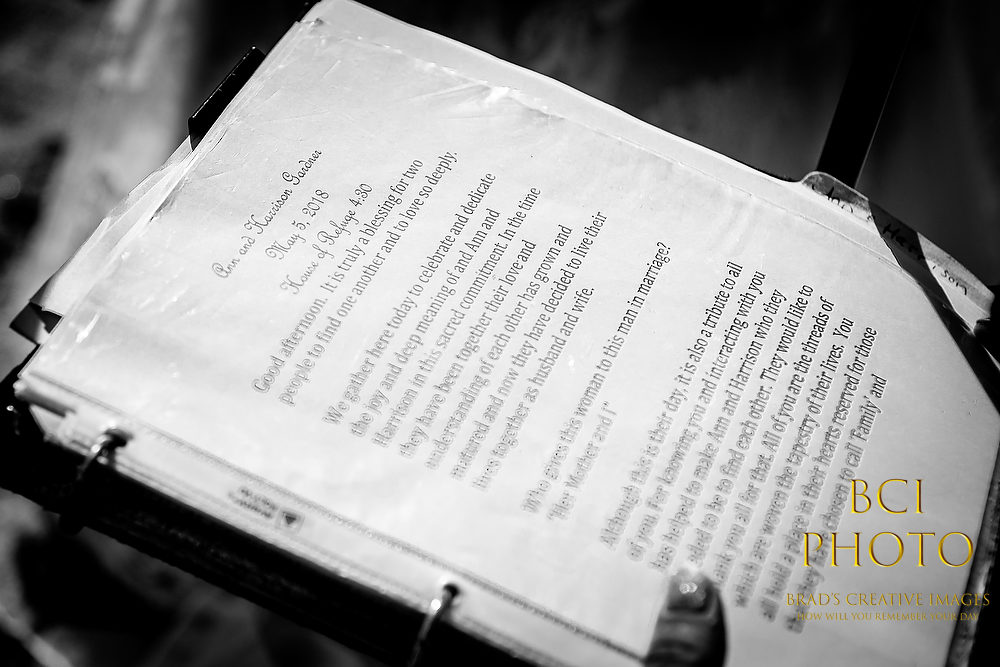 Ann and Harrison Gardner
May 5, 2018
House of Refuge 4:30
Good afternoon. It is truly a blessing for two
people to find one another and to love so deeply.
We gather here today to celebrate and dedicate
the joy and deep meaning of and Ann and
Harrison in this sacred commitment. In the time
they have been together their love and
understanding of each other has grown and
matured and now they have decided to live their
lives together as husband and wife.
Who gives this woman to this man in marriage?
"Her Mother and I"
Although this is their day, it is also a tribute to all
of you, for knowing you and interacting with you
has helped to make Ann and Harrison who they
to be to find each other. They would like to
you all for that. All of you are the threads of
which are woven the tapestry of their lives. You
all hold a place in their hearts reserved for those
they chosen to call 'Family' and
BCI
PHOTO
BRAD'S CREATIVE IMAGES
HOW WILL YOU REMEMBER YOUR DAY